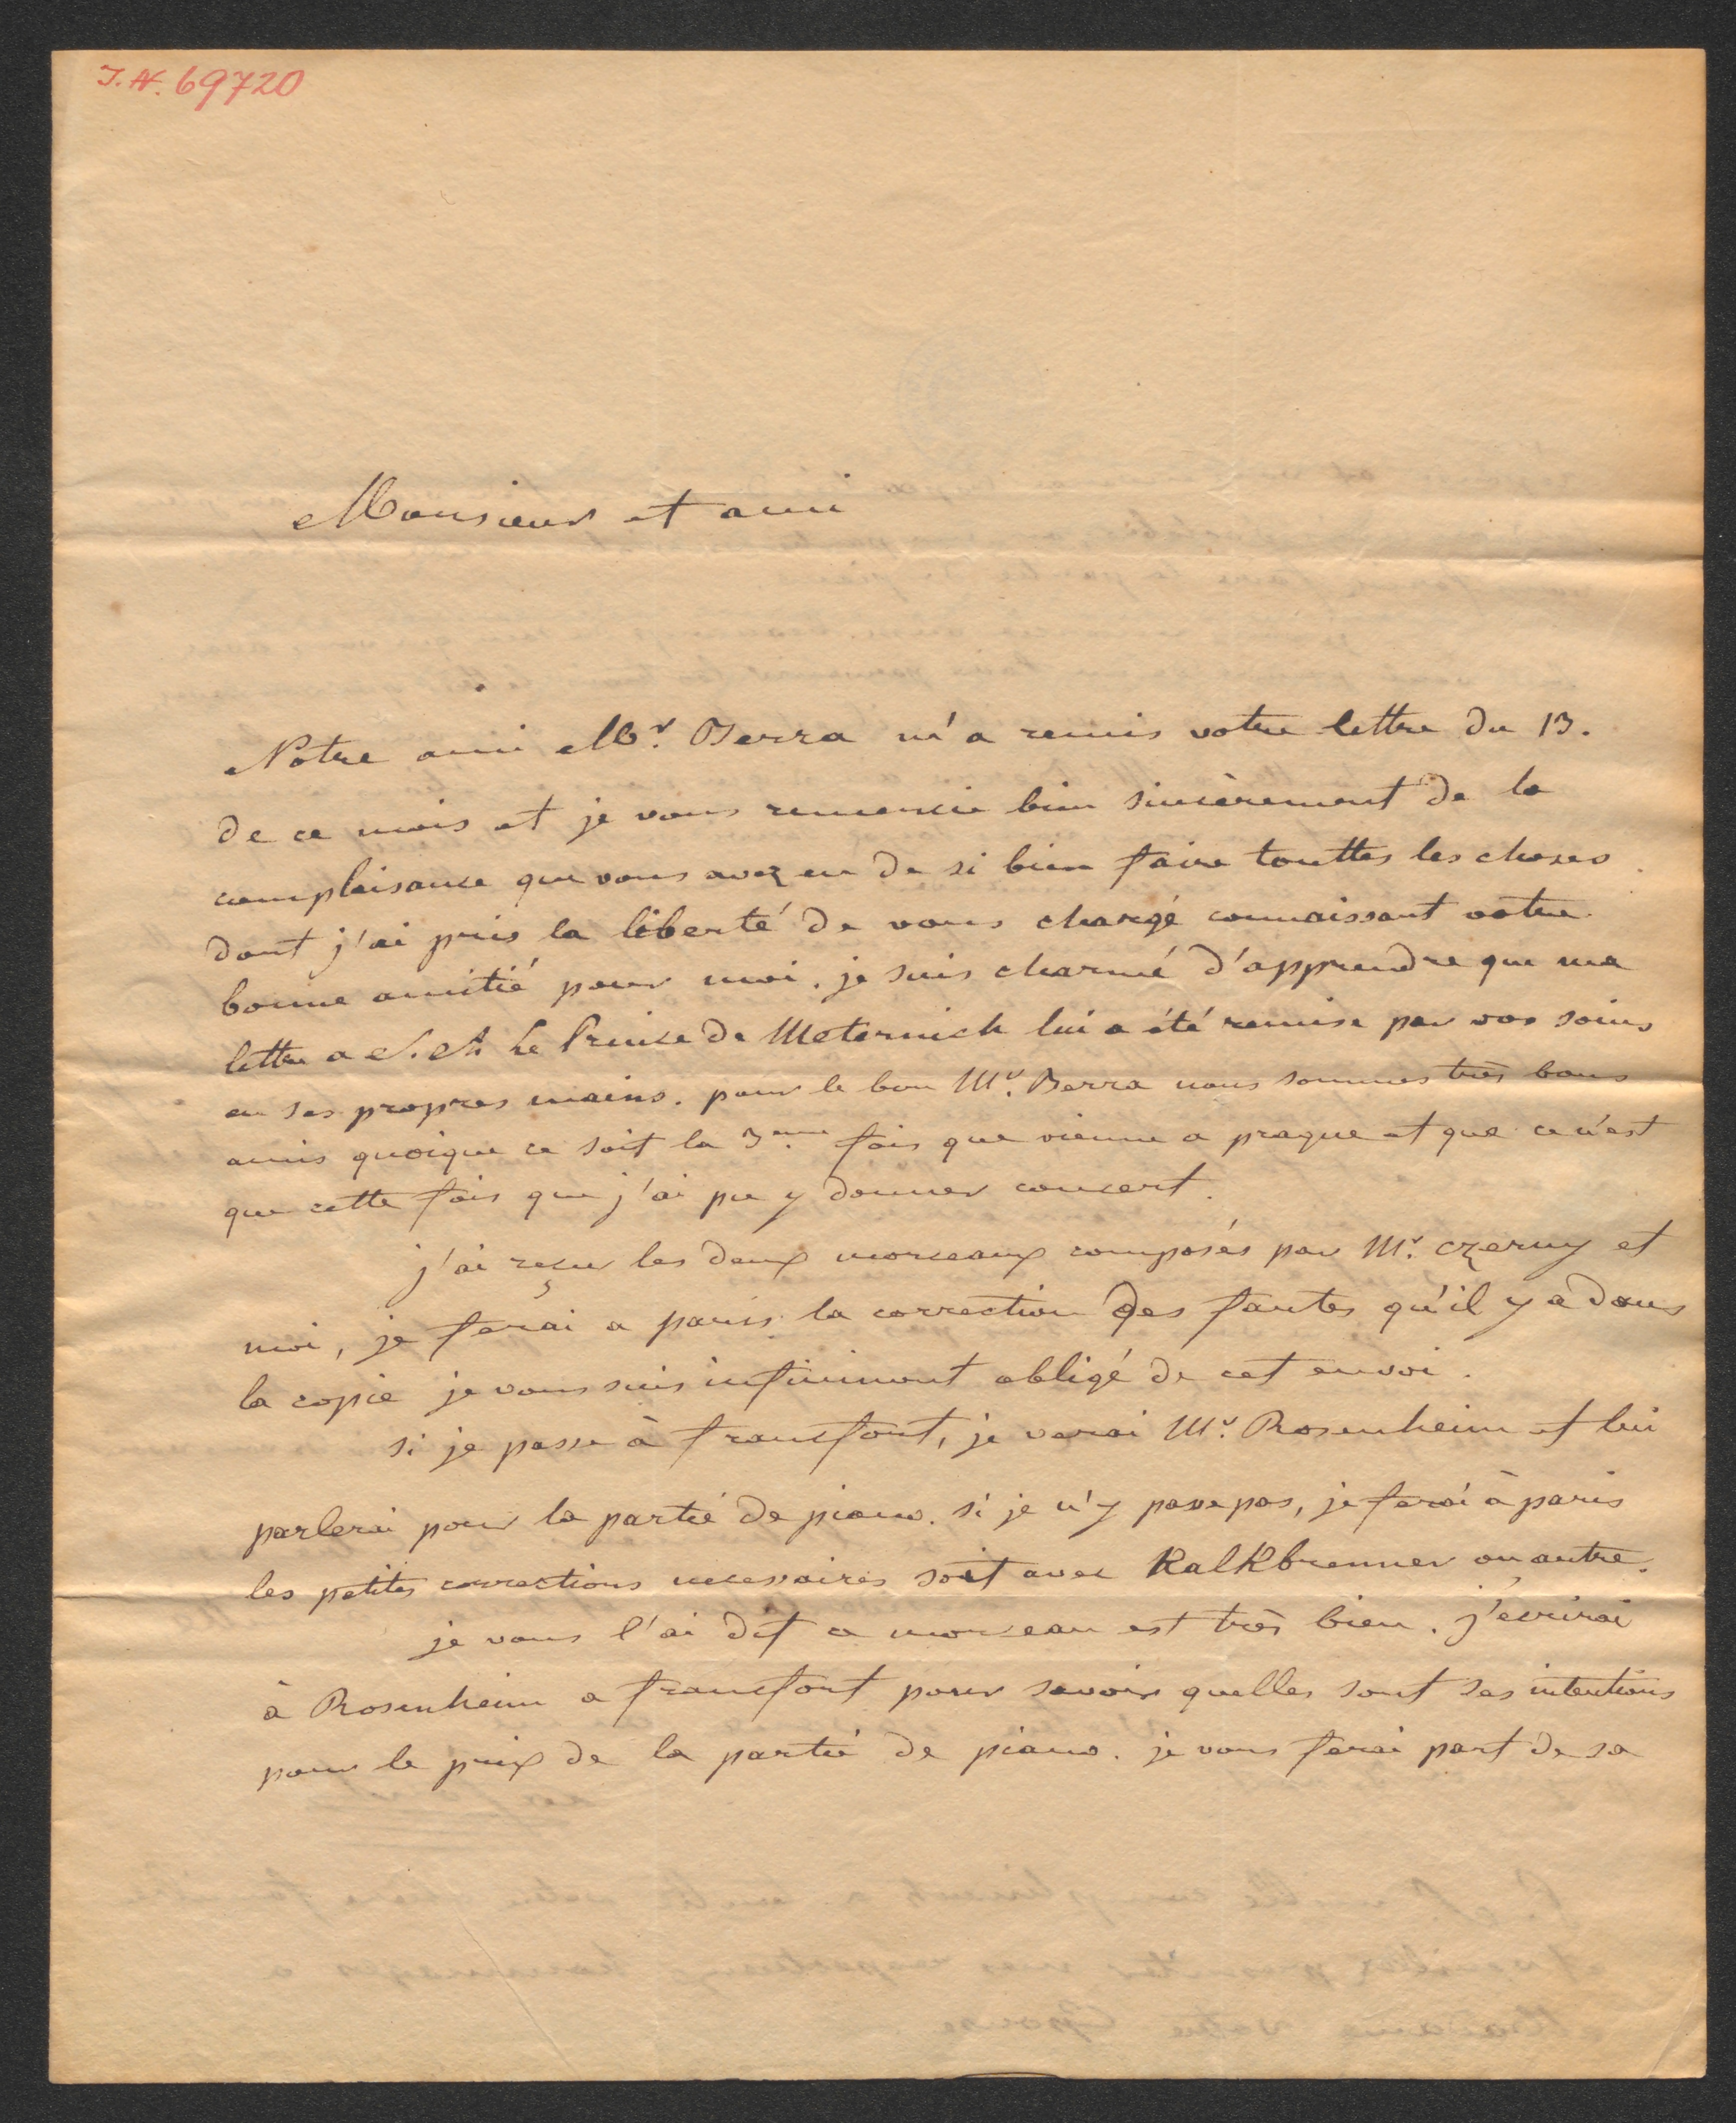 J.N. 69720
Monsieur et ami
Notre ami Mr. Berra m'a remis votre lettre du 13.
de ce mois et je vous remercie bien sincèrement de la
complaisance que vous avez eu de si bien faire touttes les choses
dont j'ai pris la liberté de vous chargé connaissant votre
bonne amitié pour moi. je suis charmé d'apprendre que ma
lettre a S. A. Le Prince de Meternich lui a été remise par vos soins
en ses propres mains. pour le bon Mr. Berra nous sommes très bons
amis quoique ce soit la 3eme fois que vienne a prague et que ce n'est
que cette fois que j'ai pu y donner concert.
j'ai reçu les deux morceaux composés par Mr. Czerny et
moi, je ferai a paris la correction des fautes qu'il y a dans
la copie je vous suis infiniment obligé de cet envoi.
si je passe à francfort, je verai Mr. Rosenheim et lui
parlerai pour la partie de piano. si je n'y passe pas, je ferai à paris
les petites corrections necessaires soit avec Kalkbrenner ou autre.
je vous l'ai dit ce morceau est très bien. j'ecrirai
à Rosenheim a francfort pour savoir quelles sont ses intentions
pour le prix de la partie de piano. je vous ferai part de sa